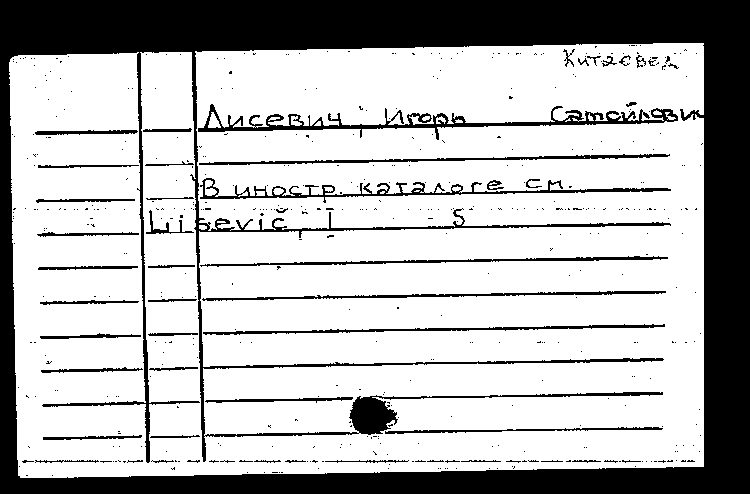 Китаевед
Лисевич, Игорь Самойлович
В иностр. каталоге см.
Lisevič, I S